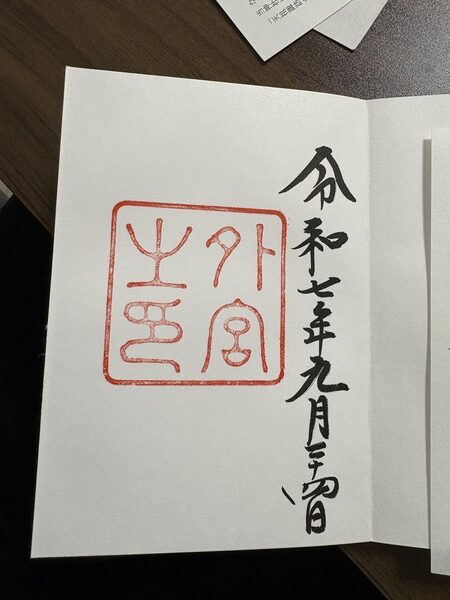 令和七年九月二十四日
外宮
之印